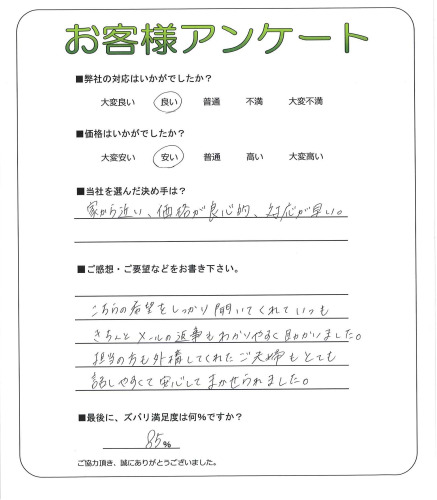 お客様アンケート
■弊社の対応はいかがでしたか？
大変良い 良い 普通 不満 大変不満
■価格はいかがでしたか？
大変安い 安い 普通 高い 大変高い
■当社を選んだ決め手は？
家から近い、価格が良心的、対応が早い。
■ご感想・ご要望などをお書き下さい。
こちらの希望をしっかり聞いてくれていつも
きちんとメールの返事もわかりやすく助かりました。
担当の方も外構してくれたご夫婦もとても
話しやすくて安心してまかせられました。
■最後に、ズバリ満足度は何％ですか？
85％
ご協力頂き、誠にありがとうございました。